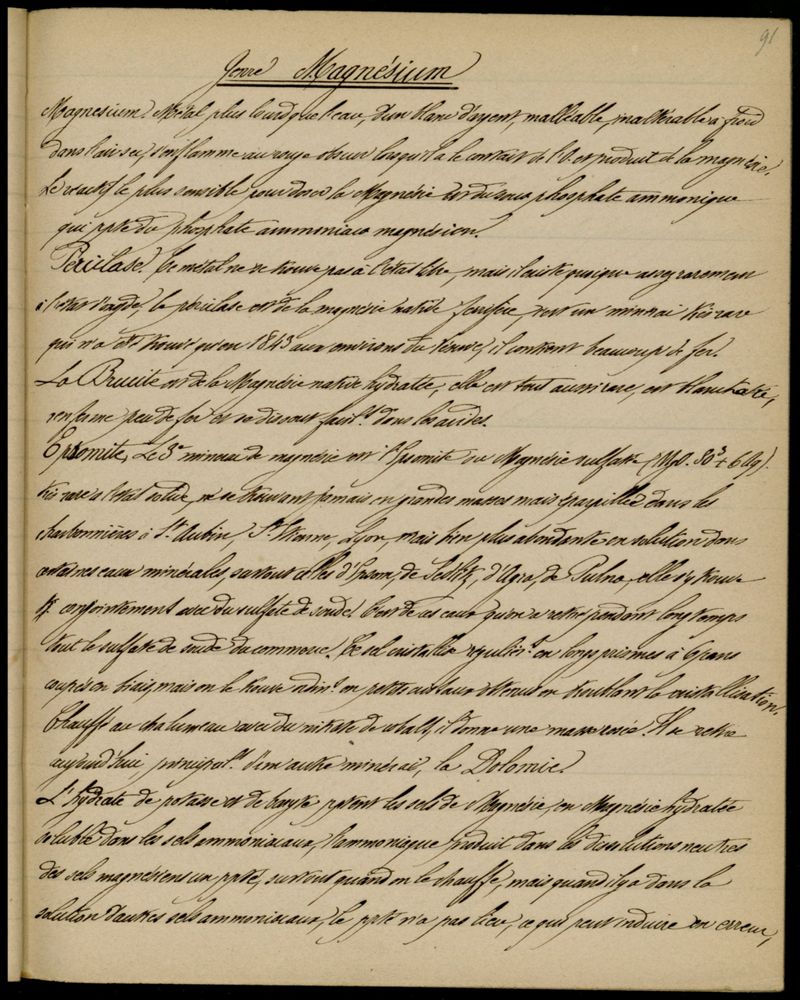 91
Genre Magnésium
Magnesium. Métal plus lourd que l'eau, d'un blanc d'argent, malléable, inaltérable à froid
dans l'air sec, s'enflamme au rouge obscur lorsqu'il a le contact de l'O. et produit de la magnésie.
Le réactif le plus sensible pour doser la Magnésie est du sous phosphate ammonique
qui ppte du phosphate ammoniaco magnésien.
Périclase. Ce métal ne se trouve pas à l'état libre, mais il existe quoique assez rarement
à l'état d'oxyde, la périclase est de la magnésie native ferrifère, c'est un minerai très rare
qui n'a été trouvé qu'en 1843 aux environs du Vésuve, il contient beaucoup de fer.
La Brucite est de la Magnésie native hydratée, elle est tout aussi rare, est blanchâtre,
renferme peu de fer et se dissout facilt. dans les acides.
Epsomite. Le 3e minerai de magnésie est l'Epsomite ou Magnésie sulfatée (MgO. SO3 + 6Aq).
très rare à l'état solide, ne se trouvant jamais en grandes masses mais éparpillée dans les
charbonnières à St. Aubin, St. Etienne, Lyon, mais bien plus abondante en solution dans
certaines eaux minérales, surtout celles d'Epsom, de Sedlitz, d'Egra, de Pulna, elle s'y trouve
conjointement avec du sulfate de soude. C'est de ces eaux qu'on a retiré pendant longtemps
tout le sulfate de soude du commerce. Ce sel cristallise régulièrt. en longs prismes à 6 pans
coupés en biais, mais on le trouve ordint. en petits cristaux obtenus en troublant la cristallisation.
Chauffé au chalumeau avec du nitrate de cobalt, il donne une masse rosée. Il se retire
aujourd'hui, principalt. d'un autre minéral, la Dolomie.
L'hydrate de potasse et de baryte pptent les sels de Magnésie, en Magnésie hydratée
soluble dans les sels ammoniacaux, l'ammoniaque produit dans les dissolutions neutres
des sels magnésiens un ppté, surtout quand on le chauffe, mais quand il y a dans la
solution d'autres sels ammoniacaux, le ppté n'a pas lieu, ce qui peut induire en erreur,